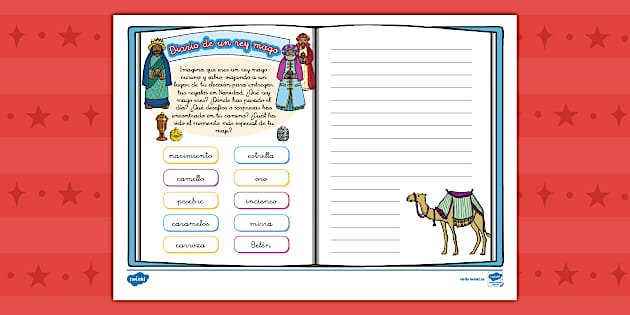 Diario de un rey mago
Imagina que eres un rey mago
curioso y sabio viajando a un
lugar de tu elección para entregar
tus regalos en Navidad. ¿Qué rey
mago eres? ¿Dónde has pasado el
día? ¿Qué desafíos o sorpresas has
encontrado en tu camino? ¿Cuál ha
sido el momento más especial de tu
viaje?
nacimiento
estrella
camello
oro
pesebre
incienso
caramelos
mirra
carroza
Belén
twinkl
visita twinkl.es